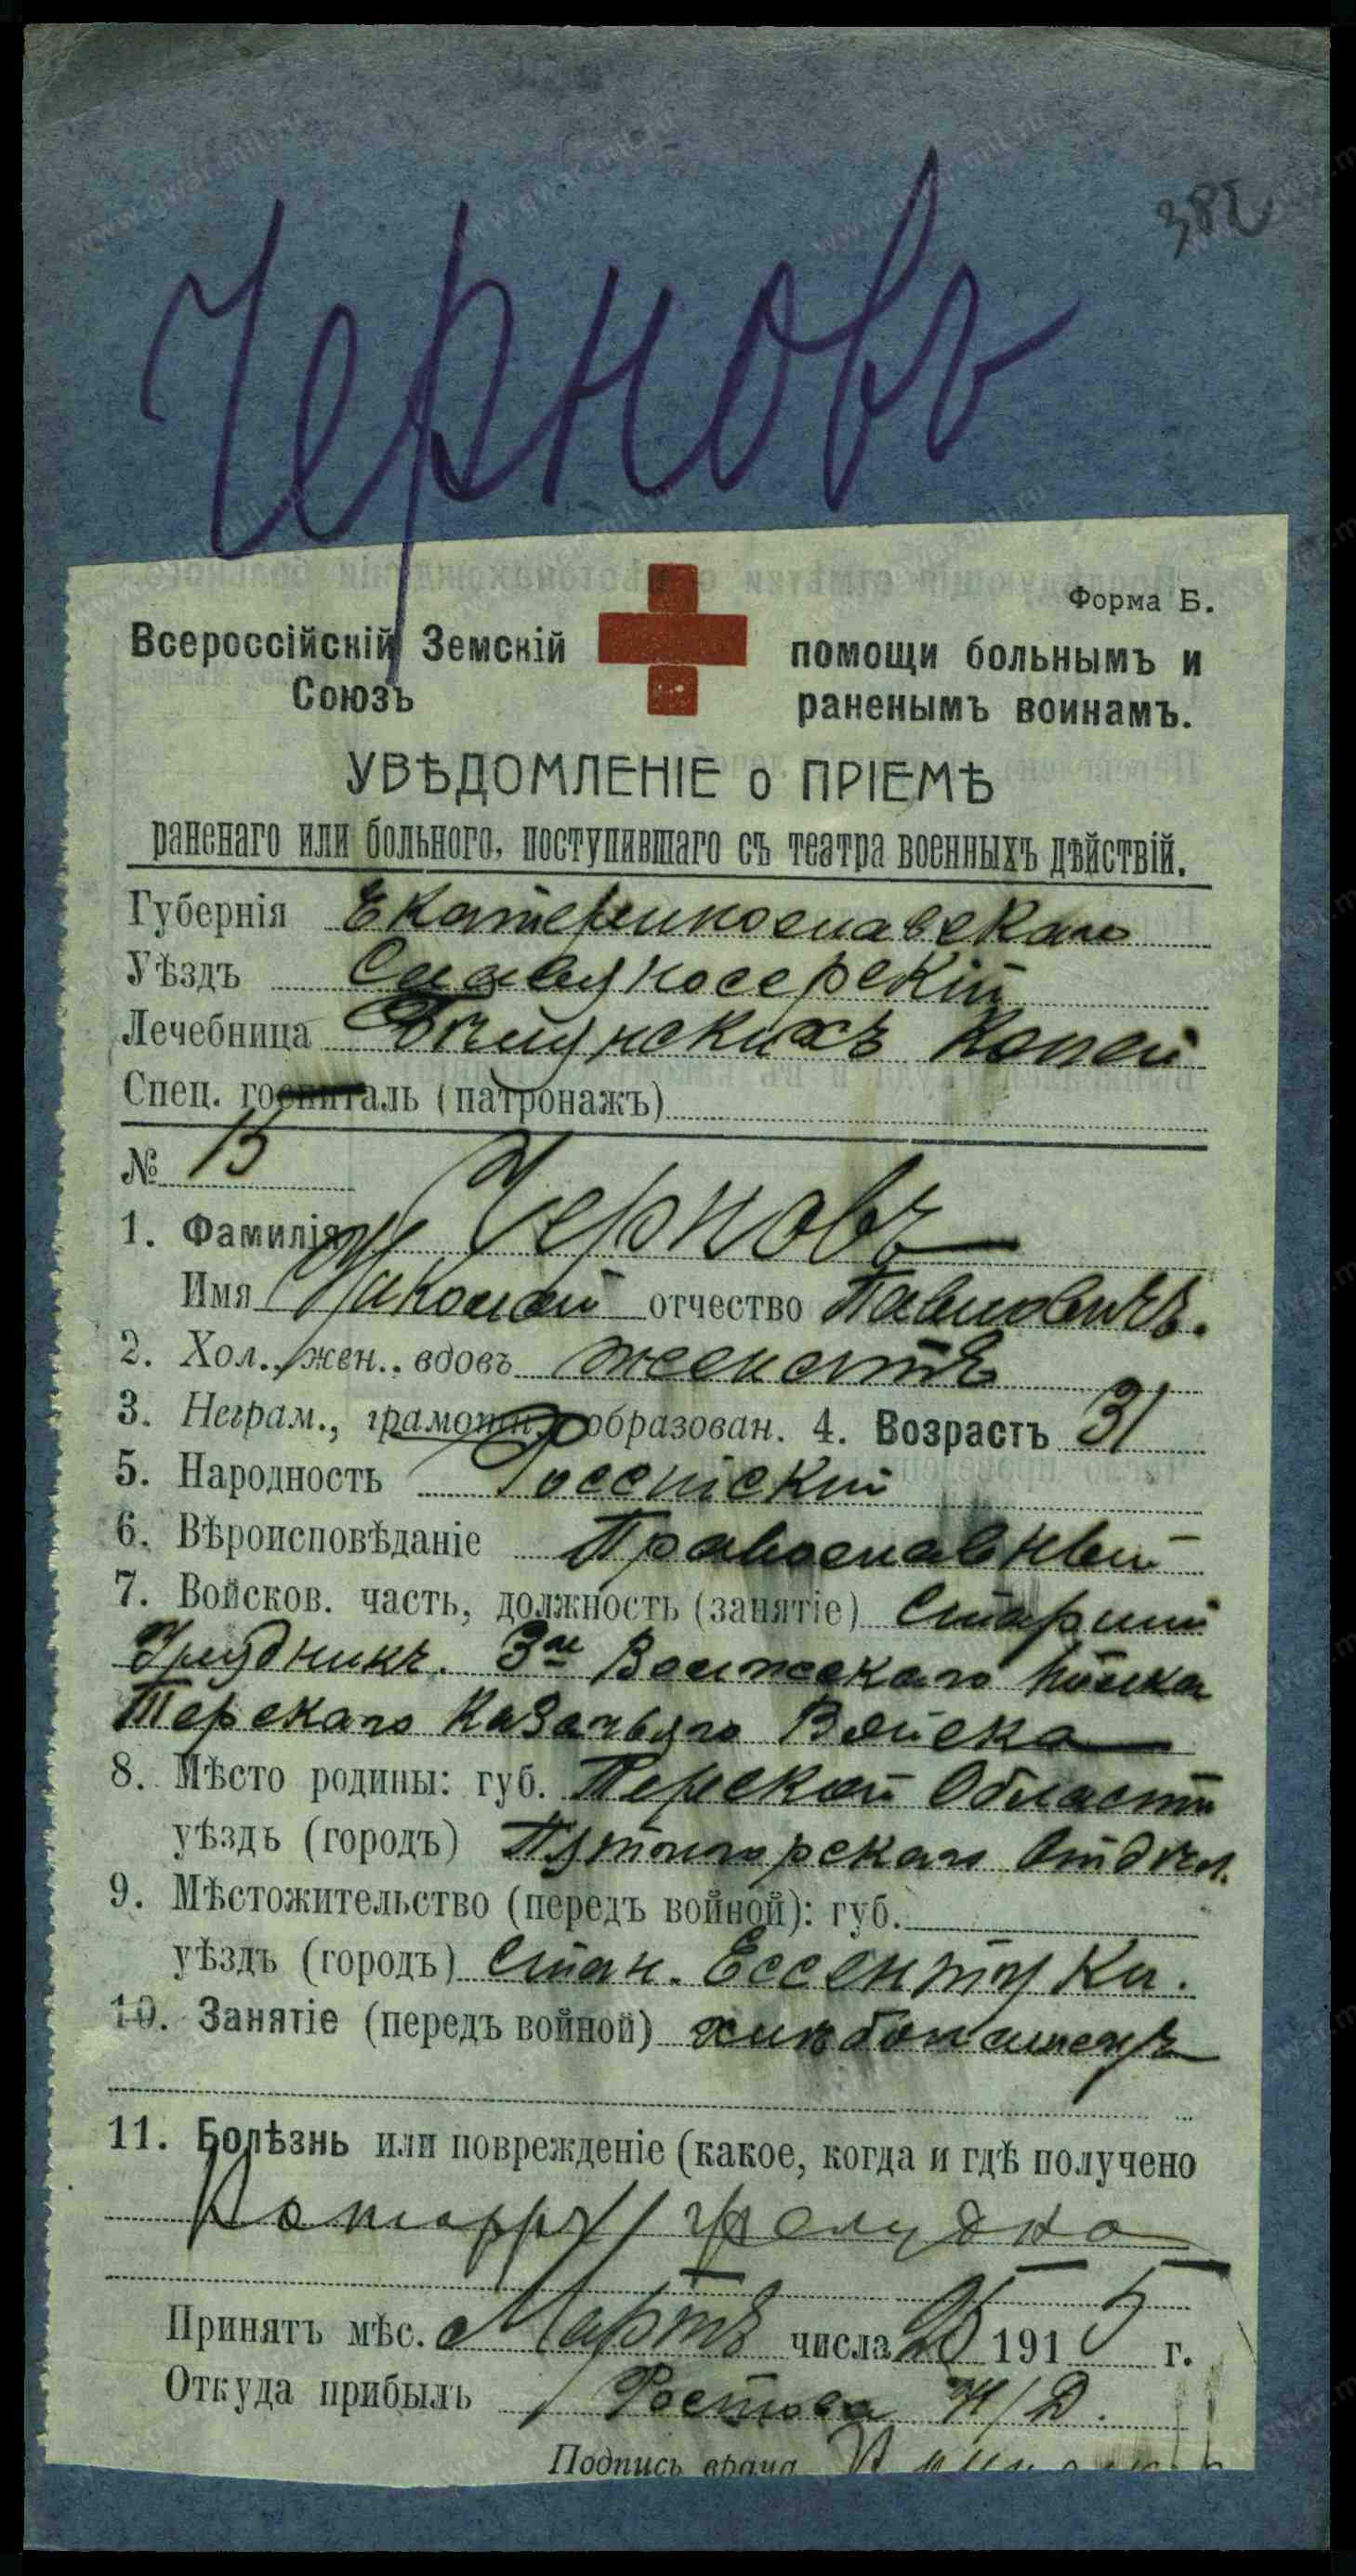 382
Черновъ
Форма Б.
Всероссійскій Земскій Союзъ помощи больнымъ и раненымъ воинамъ.
УВѢДОМЛЕНІЕ о ПРІЕМѢ
раненаго или больного, поступившаго съ театра военныхъ дѣйствій.
Губернія Екатеринославскаго
Уѣздъ Славяносерскій
Лечебница копей
Спец. госпиталь (патронажъ)
№ 15
1. Фамилія Черновъ
Имя Николай отчество Павловичъ.
2. Хол., жен., вдовъ женатъ
3. Неграм., грамотн., образован. 4. Возрастъ 31
5. Народность Россійскій
6. Вѣроисповѣданіе Православный
7. Войсков. часть, должность (занятіе) Старшій
Урядникъ. 3го Волжскаго полка
Терскаго Казачьяго Войска
8. Мѣсто родины: губ. Терской Области
уѣздъ (городъ) Пятигорскаго Отдѣл.
9. Мѣстожительство (передъ войной): губ.
уѣздъ (городъ) Стан. Ессентуки.
10. Занятіе (передъ войной) хлѣбопашецъ
11. Болѣзнь или поврежденіе (какое, когда и гдѣ получено
Катарръ желудка
Принятъ мѣс. Мартъ числа 25 1915 г.
Откуда прибылъ Ростова Н/Д.
Подпись врача